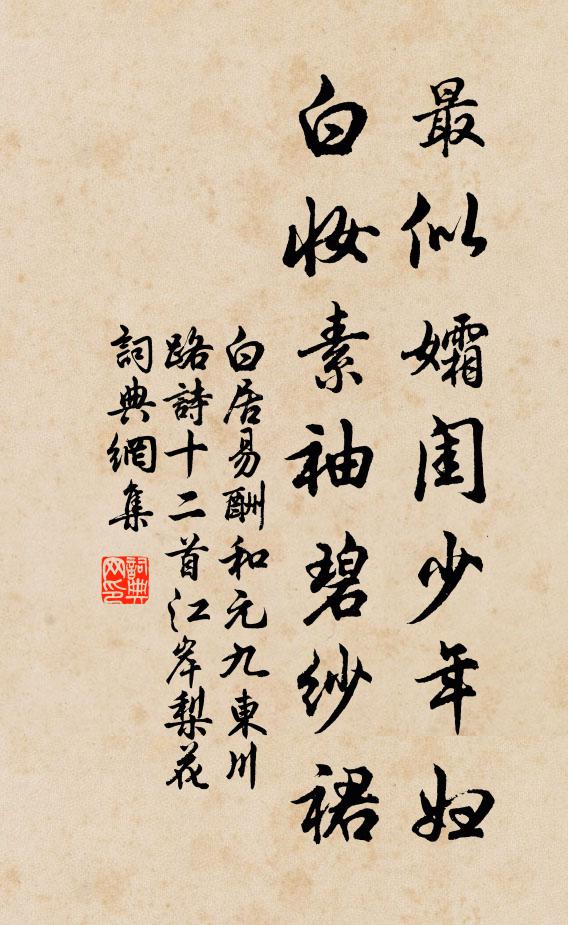 最似孀闺少年妇
白妆素袖碧纱裙
白居易酬和元九東川
路詩十二首江岸梨花
詞典網集
詞典网印